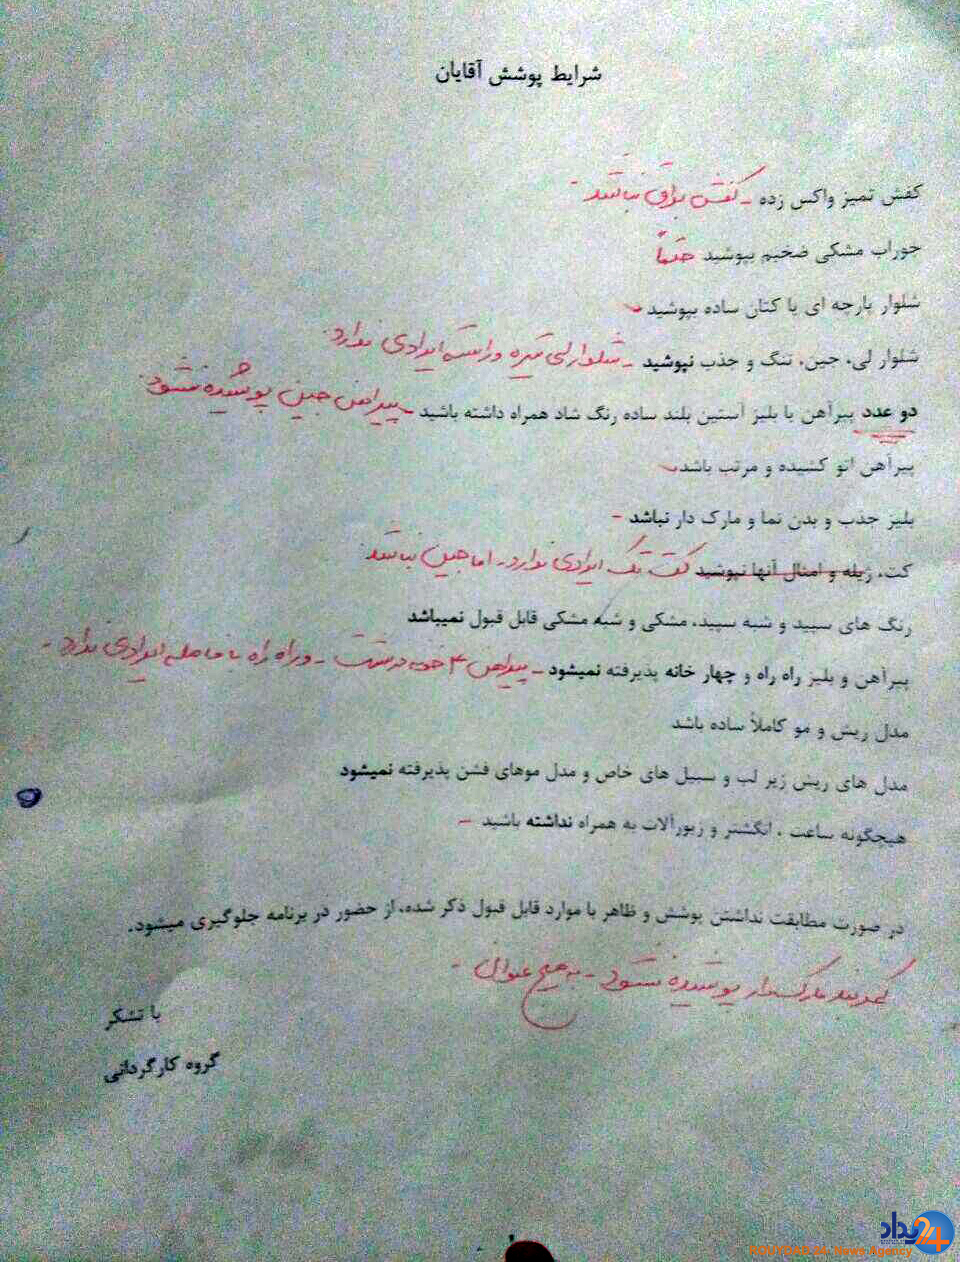 شرایط پوشش آقایان
کفش تمیز واکس زده - کفش براق نباشد -
جوراب مشکی ضخیم بپوشید حتماً
شلوار پارچه ای یا کتان ساده بپوشید
شلوار لی، جین، تنگ و جذب نپوشید - شلوار لی تیره و راسته ایرادی ندارد.
دو عدد پیرآهن یا بلیز آستین بلند ساده رنگ شاد همراه داشته باشید - پیراهن جین پوشیده نشود.
پیرآهن اتو کشیده و مرتب باشد
بلیز جذب و بدن نما و مارک دار نباشد -
کت، ژیله و امثال آنها نپوشید کت تک ایرادی ندارد. اما جین نباشد.
رنگ های سپید و شبه سپید، مشکی و شبه مشکی قابل قبول نمیباشد
پیرآهن و بلیز راه راه و چهار خانه پذیرفته نمیشود - پیراهن ۴ خونه درشت - و راه راه با فاصله ایرادی ندارد -
مدل ریش و مو کاملاً ساده باشد
مدل های ریش زیر لب و سبیل های خاص و مدل موهای فشن پذیرفته نمیشود
هیچگونه ساعت ، انگشتر و زیورآلات به همراه نداشته باشید -
در صورت مطابقت نداشتن پوشش و ظاهر با موارد قابل قبول ذکر شده، از حضور در برنامه جلوگیری میشود.
کمربند مارکدار پوشیده نشود - به هیچ عنوان -
با تشکر
گروه کارگردانی
رویداد 24
ROUYDAD 24 News Agency